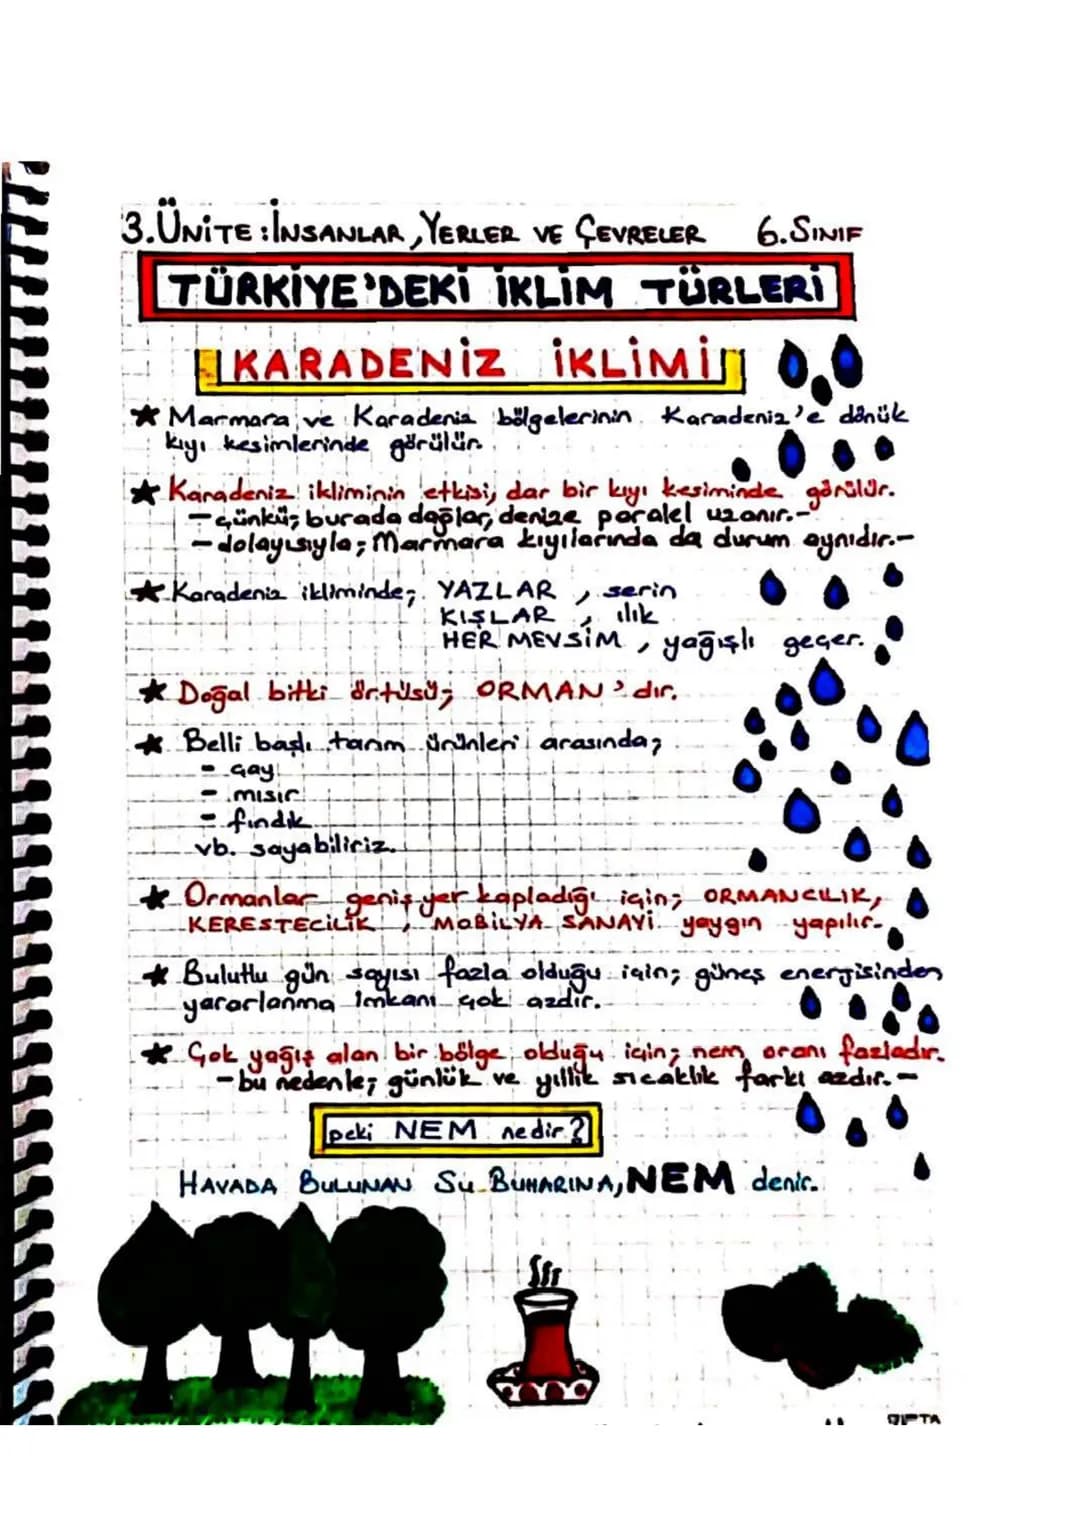 3.ÜNİTE:İNSANLAR, YERLER VE ÇEVRELER 6.SINIF
TÜRKİYE'DEKİ İKLİM TÜRLERİ
KARADENİZ İKLİMİ
★ Marmara ve Karadeniz bölgelerinin Karadeniz'e dönük
kıyı kesimlerinde görülür.
★ Karadeniz ikliminin etkisi, dar bir kıyı kesiminde görülür.
- çünkü; burada dağlar, denize paralel uzanır.-
- dolayısıyla; Marmara kıyılarında da durum aynıdır.-
★ Karadeniz ikliminde; YAZLAR, serin
KIŞLAR, ılık
HER MEVSİM, yağışlı geçer.
★ Doğal bitki örtüsü; ORMAN'dır.
★ Belli başlı tarım ürünleri arasında;
- çay
- mısır
- fındık
vb. sayabiliriz.
★ Ormanlar geniş yer kapladığı için; ORMANCILIK,
KERESTECİLİK, MOBİLYA SANAYİ yaygın yapılır.
★ Bulutlu gün sayısı fazla olduğu için; güneş enerjisinden
yararlanma imkanı çok azdır.
★ Çok yağış alan bir bölge olduğu için; nem oranı fazladır.
- bu nedenle; günlük ve yıllık sıcaklık farkı azdır. -
peki NEM nedir?
HAVADA BULUNAN SU BUHARINA, NEM denir.